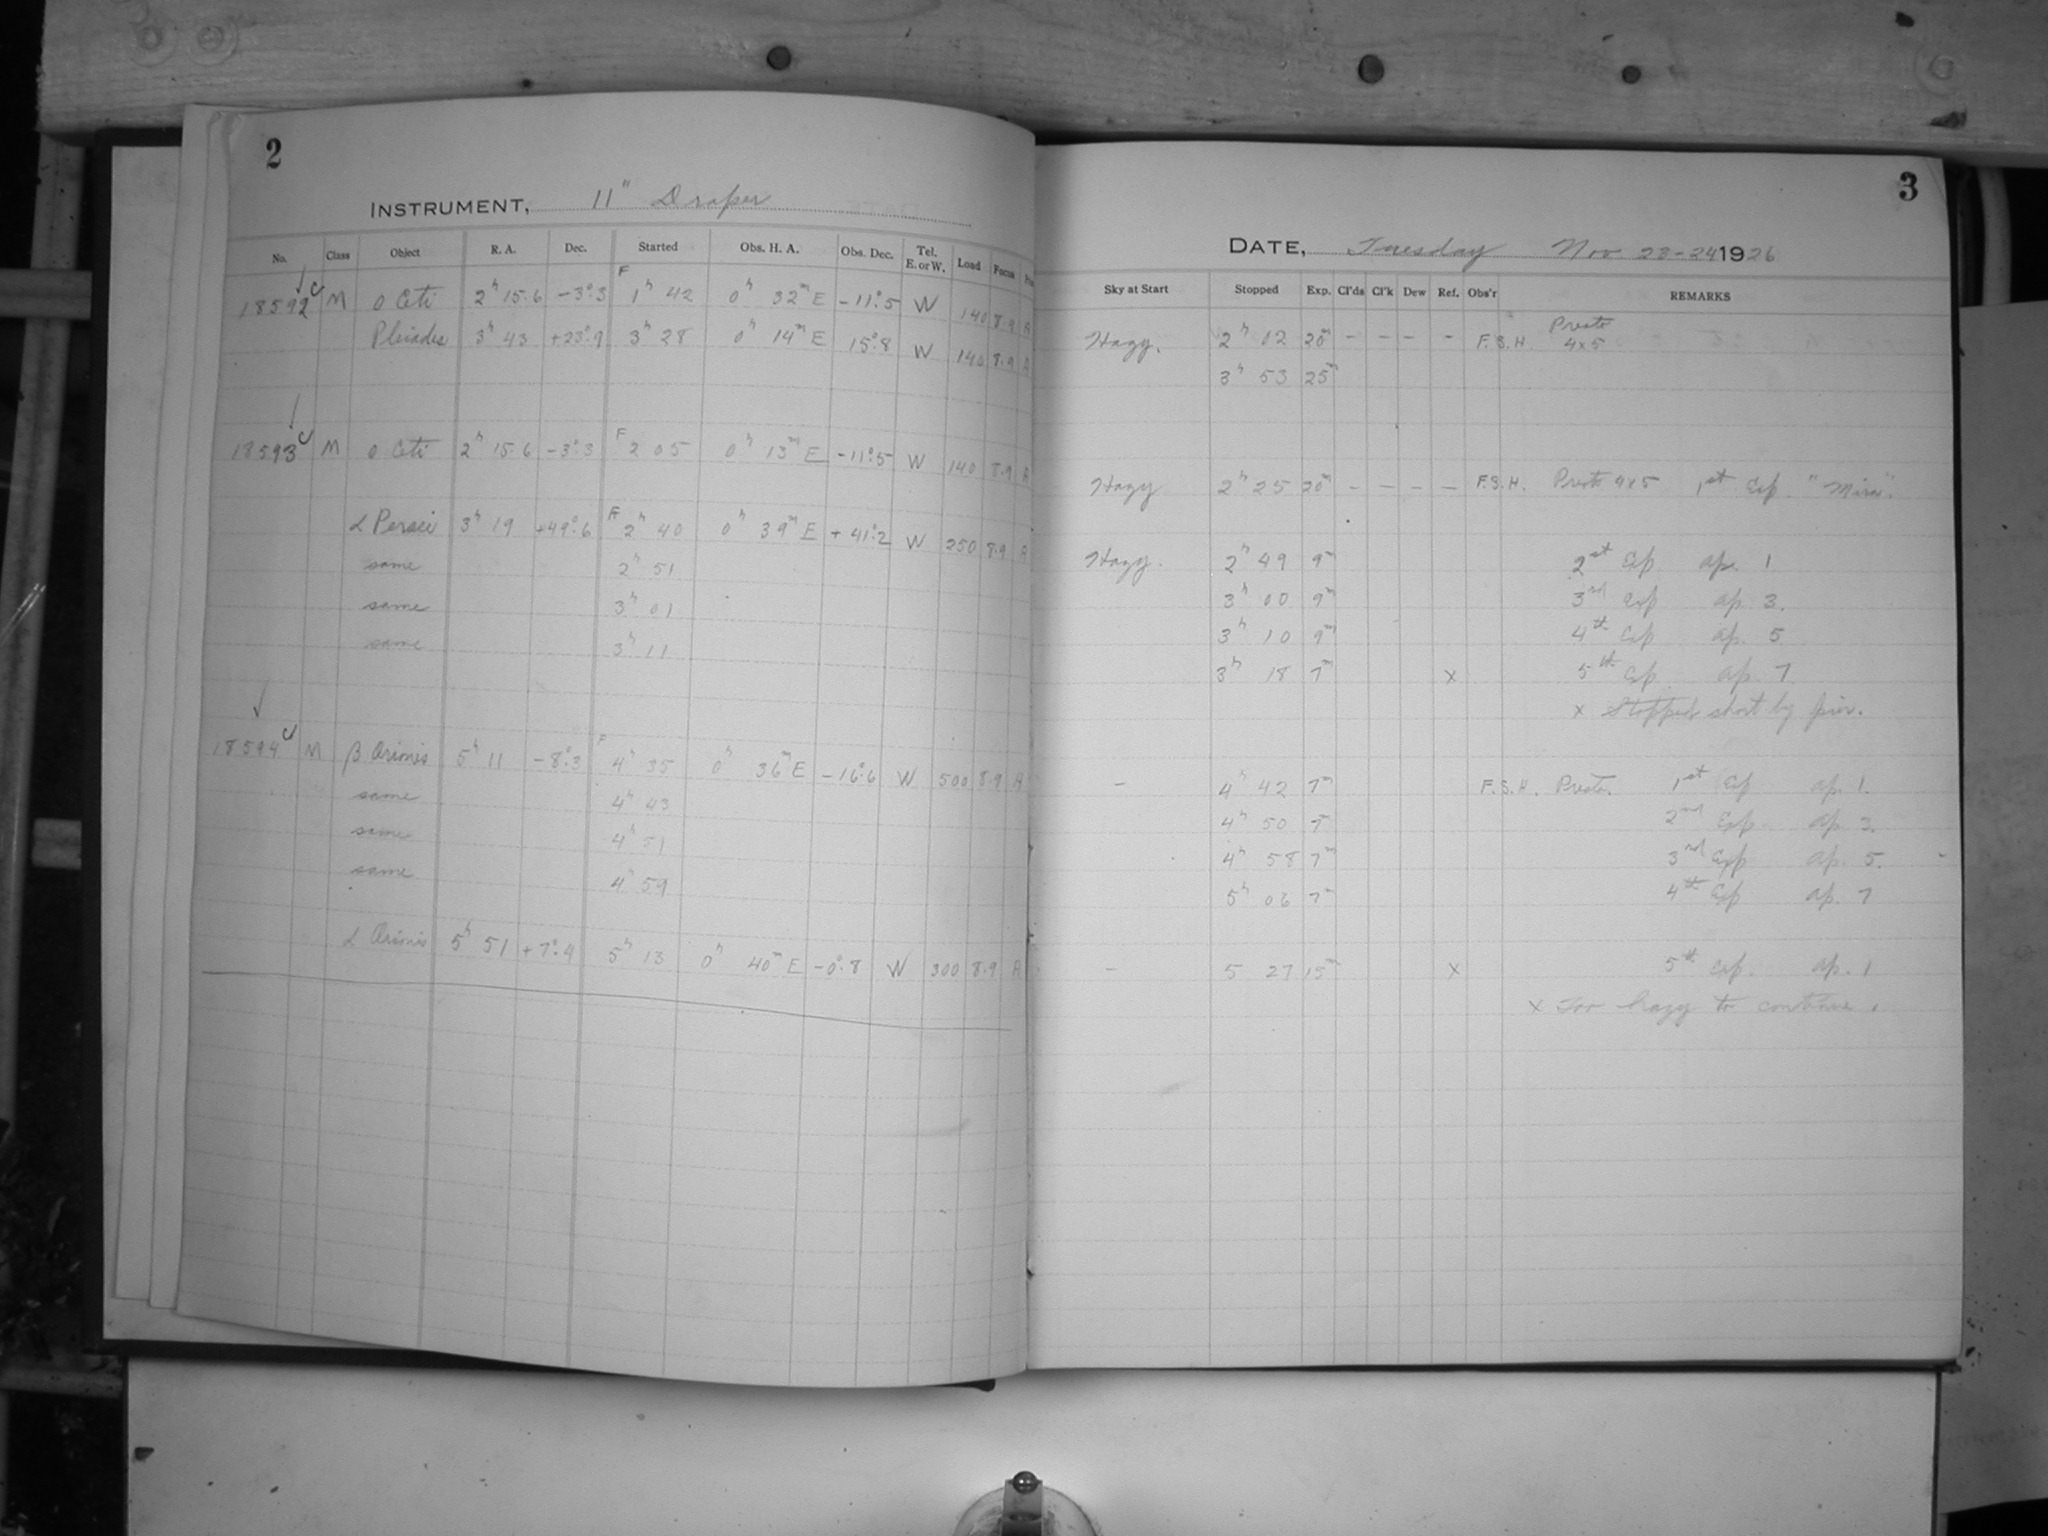 2
INSTRUMENT, 11" Draper
No. Class Object R. A. Dec. Started Obs. H. A. Obs. Dec. Tel. E. or W. Load Focus
18592 M o Ceti 2h 15.6 -3°.3 F 1h 42 0h 32m E -11°.5 W 140 8.9 A
Pleiades 3h 43 +23°.9 3h 28 0h 14m E 15°.8 W 140 8.9 A
18593 M o Ceti 2h 15.6 -3°.3 F 2 05 0h 13m E -11°.5 W 140 8.9 A
α Persei 3h 19 +49°.6 F 2h 40 0h 39m E +41°.2 W 250 8.9 A
same 2h 51
same 3h 01
same 3h 11
18594 M β Orionis 5h 11 -8°.3 F 4h 35 0h 36m E -16°.6 W 500 8.9 A
same 4h 43
same 4h 51
same 4h 59
α Orionis 5h 51 +7°.4 5h 13 0h 40m E -0°.8 W 300 8.9 A
3
DATE, Tuesday Nov 23-24 1926
Sky at Start Stopped Exp. Cl'ds Cl'k Dew Ref. Obs'r REMARKS
Hazy. 2h 02 20m - - - - F.S.H. Presto 4x5
3h 53 25m
Hazy 2h 25 20m - - - - F.S.H. Presto 4x5 1st Exp. "Mira".
Hazy. 2h 49 9m 2st Exp ap. 1
3h 00 9m 3rd Exp ap. 3.
3h 10 9m 4th Exp ap. 5
3h 18 7m x 5th Exp ap. 7
x Stopped short by pier.
- 4h 42 7m F.S.H. Presto. 1st Exp ap. 1.
4h 50 7m 2nd Exp. ap. 3.
4h 58 7m 3rd Exp ap. 5.
5h 06 7m 4th Exp ap. 7
- 5 27 15m x 5th exp. ap. 1
x Too hazy to continue.